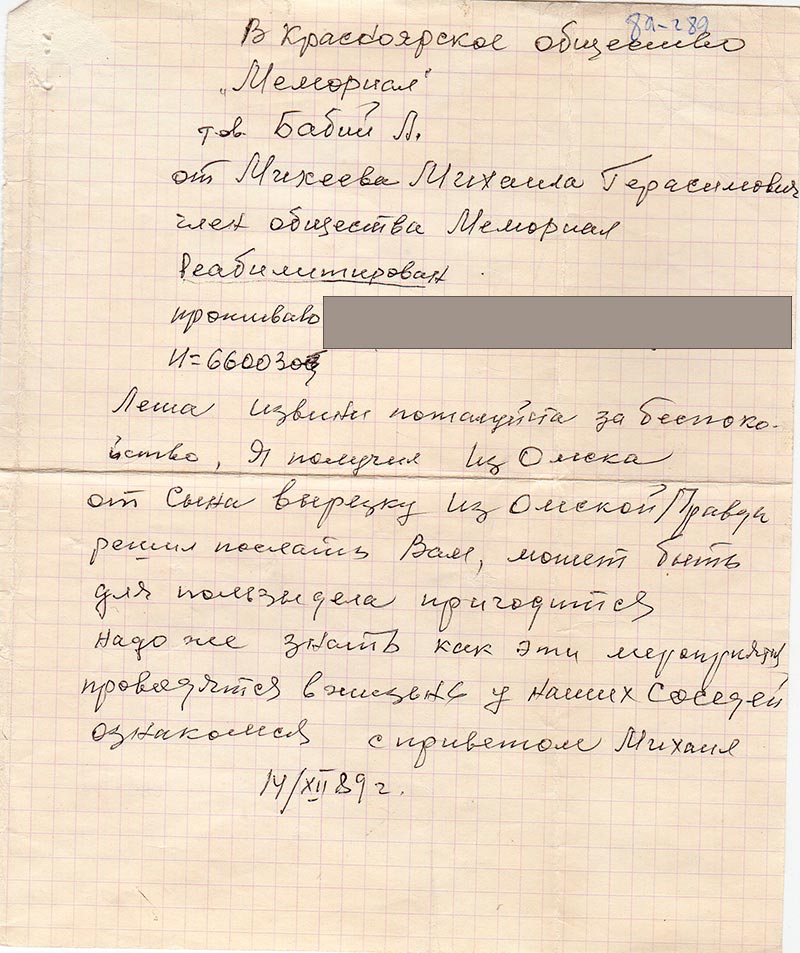 89-289
В Красноярское общество
„Мемориал"
тов. Бабий А.
от Михеева Михаила Герасимович
член общества Мемориал
Реабилитирован
проживаю
И=660030
Леша извини пожалуйста за беспоко-
йство, Я получил Из Омска
от Сына вырезку Из Омской Правды
решил послать Вам, может быть
для пользы дела пригодится
надо же знать как эти мероприятия
проводятся в жизень у наших Соседей
ознакомся с приветом Михаил
14/XII 89 г.